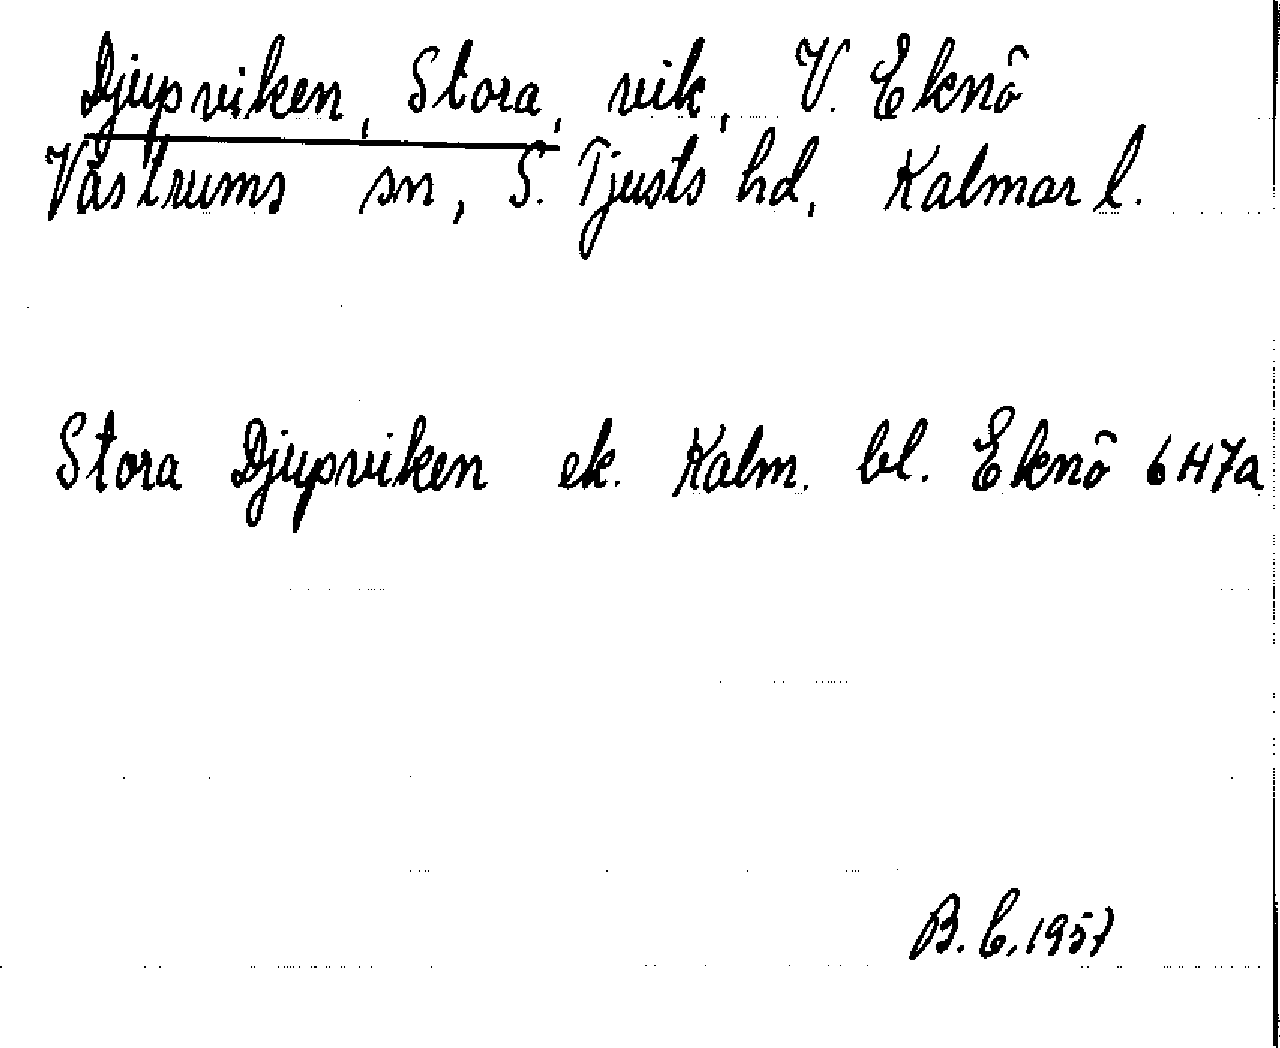 Djupviken, Stora, vik, V. Eknö
Västrums sn, S. Tjusts hd, Kalmar l.
Stora Djupviken ek. Kalm. bl. Eknö 6H7a
B. E. 1957